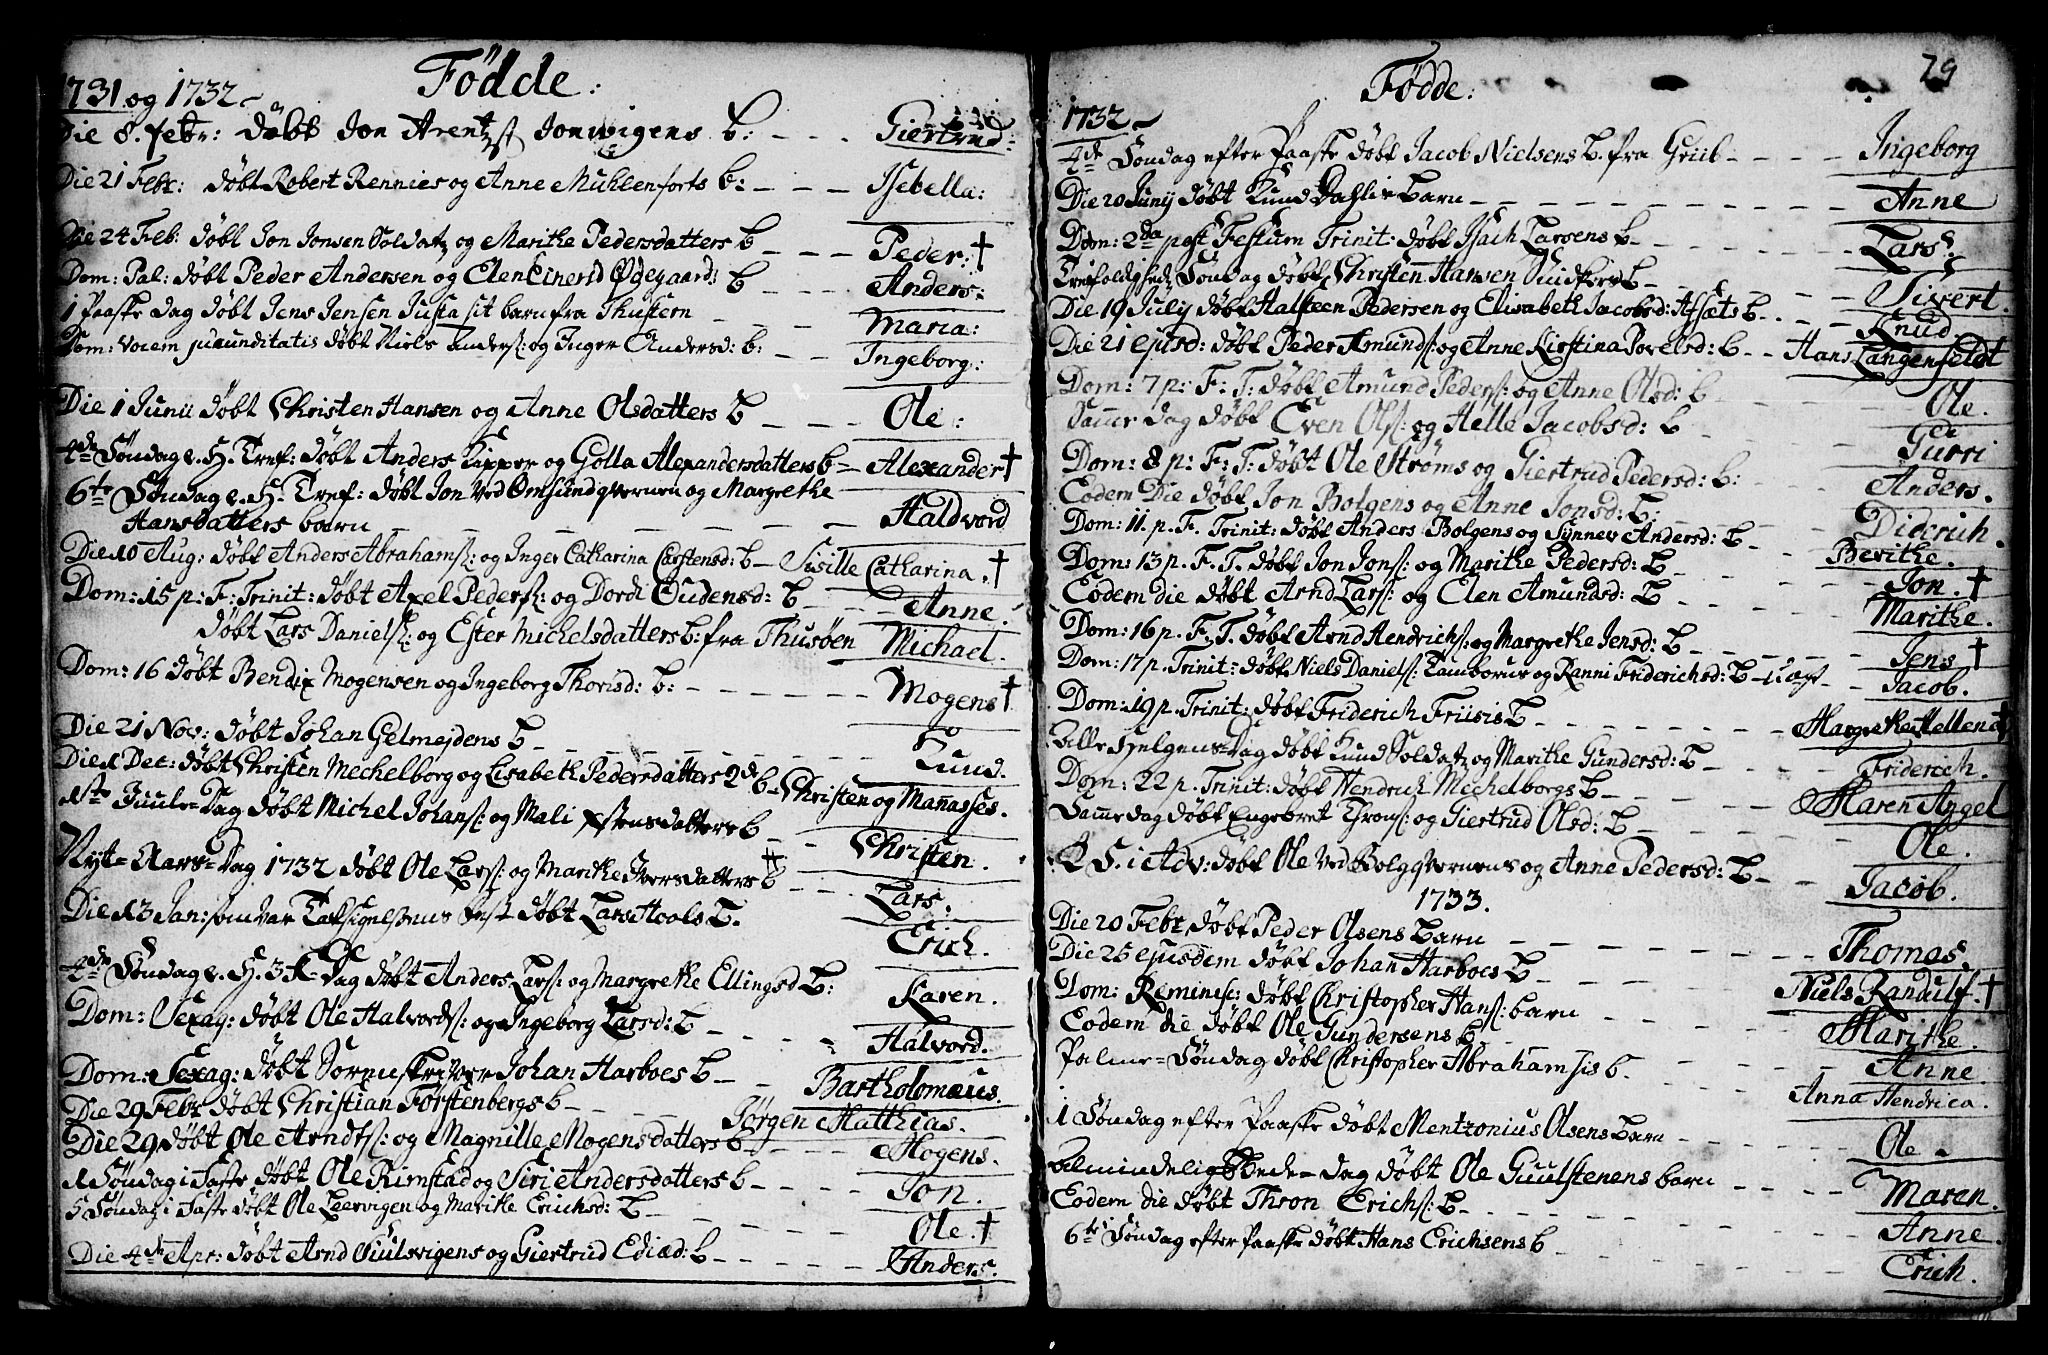 1731 og 1732
Fødde:
Die 8. febr: døbt Jon Arentz. Jonwigens b: - - - Giertrud:
Die 21 Febr: døbt Robert Rennies og Anne Muhlenforts b: - - - Isebella:
Die 24 Feb: døbt Jon Jonsen Soldatz og Marithe Pedersdatters b - - - Peder: †
Dom: Pal: døbt Peder Andersen og Elen Einersd Ødegaard: b - - - Anders:
1 Paaske dag døbt Jens Jensen Justa sit barn fra Thustern - - - Maria:
Dom: vocem jucunditatis døbt Niels Anders: og Inger Andersd: b: - - Ingeborg:
Die 1 Junii døbt Christen Hansen og Anne Olsdatters b - - - Ole:
4de Søndag e. H. Tref: døbt Anders Kipper og Golla Alexandersdatters b - Alexander †
6te Søndag e. H. Tref: døbt Jon ved Omsundqvernen og Margrethe
Hansdatters barn - - - Haldvord
Die 10 Aug: døbt Anders Abrahams: og Inger Catharina Carstensd: b - Sisille Catharina. †
Dom: 15 p: F: Trinit: døbt Axel Peders: og Dordi Oudensd: b - - - Anne.
døbt Lars Daniels: og Ester Michelsdatters b: fra Thusøen Michael.
Dom: 16 døbt Bendix Mogensen og Ingeborg Thorisd: b: - - - Mogens †
Die 21 Nov: døbt Johan Gelmejdens b - - - Knud.
Die 1 Dec: døbt Christen Mechelborg og Lisabeth Pedersdatters 2de b - Christen og Manasses.
1ste Juule-Dag døbt Michel Johans: og Mali datters b - - Christen.
Nyt-Aars-Dag 1732 døbt Ole Lars: og Marithe Iversdatters b - - Lars.
Die 13 Jan: som var Taksigelsens Fest døbt Lars Hools b. Erich.
4de Søndag e. H. 3 K-Dag døbt Anders Lars: og Margrethe Ellingsd b: Karen.
Dom: Sexag: døbt Ole Halvords: og Ingeborg Larsd: b - - - Halvord.
Dom: Sexag: døbt Sorenskriver Johan Harboes b - - - Bartholomæus.
Die 29 Febr døbt Christian Førstenbergs b - - - Jørgen Matthias.
Die 29 døbt Ole Arndts: og Magnille Mogensdatters b - - - Mogens.
1 Søndag i Faste døbt Ole Rimstad og Siri Andersdatters b - - - Jon.
5 Søndag i Faste døbt Ole Leervigen og Marithe Erichsd: b - - - Ole. †
Die 4de Apr: døbt Arnd Juulsvigens og Giertrud Ediæd: b - - - Anders.
29
Fødde:
1732
4de Søndag efter Paaske døbt Jacob Nielsens b. fra Griib - - - Ingeborg
Die 20 Junij døbt Knud Dahlis barn - - - Anne
Dom: 2da post Festum Trinit: døbt Isach Larsens b - - - Lars.
Trefoldigheds Søndag døbt Christen Hansen b - - - Sivert.
Die 19 Julij døbt Halsteen Pedersen og Elisabeth Jacobsd: Afsæts b - - - Knud
Die 21 ejusd: døbt Peder Asmunds: og Anne Kirstina Povelsd: b - - Hans Langenfeldt
Dom: 7 p: F: T: døbt Amund Peders: og Anne Olsd: b - Ole.
Samme dag døbt Even Ols: og Helle Jacobsd: b - Gurri
Dom: 8 p: F: T: døbt Ole Strøms og Giertrud Pedersd: b: - Anders.
Eodem Die døbt Jon Bolgens og Anne Jonsd: b: - - - Diderich.
Dom: 11. p. F. Trinit: døbt Anders Bolgens og Synnev Andersd: b - - Berithe.
Dom: 13 p. F. T. døbt Jon Jons: og Marithe Pedersd: b - - - Jon. †
Eodem die døbt Arnd Lars: og Elen Amundsd: b - - - Marithe.
Dom: 16 p. F. T. døbt Arnd Hendrichs: og Margrethe Jensd: b - - - Jens †
Dom: 17 p. Trinit: døbt Niels Daniels: Tambours og Ranni Friderichsd: b - - - Jacob.
Dom: 19 p. Trinit: døbt Friderich Friisis b - - - Margrethe Hellena †
Alle Helgens-Dag døbt Knud Soldatz og Marithe Gundersd: b - - - Friderich.
Dom: 22 p. Trinit: døbt Hendrich Mechelborgs b - - - Maren Angel
Samme dag døbt Engebret Throns: og Giertrud Olsd: b - - - Ole.
2 S. i Adv: døbt Ole ved Bolgqvernens og Anne Pedersd: b - - Jacob.
1733.
Die 20 Febr døbt Peder Olsens barn - - - Thomas.
Die 25 ejusdem døbt Johan Harboes b - - - Niels Randulf. †
Dom: Reminisc: døbt Christopher Hans: barn - - - Marithe.
Eodem die døbt Ole Gundersens b - - - Anne.
Palme-Søndag døbt Christopher Abrahamsis b - - - Anna Hendrica.
1 Søndag efter Paaske døbt Mentzonius Olsens barn - - - Ole.
Almindelig Bede-dag døbt Ole Guulstenens barn - - - Maren.
Eodem die døbt Thron Erichs: b - - - Anne.
6te Søndag efter Paaske døbt Hans Erichsens b - - - Erich.